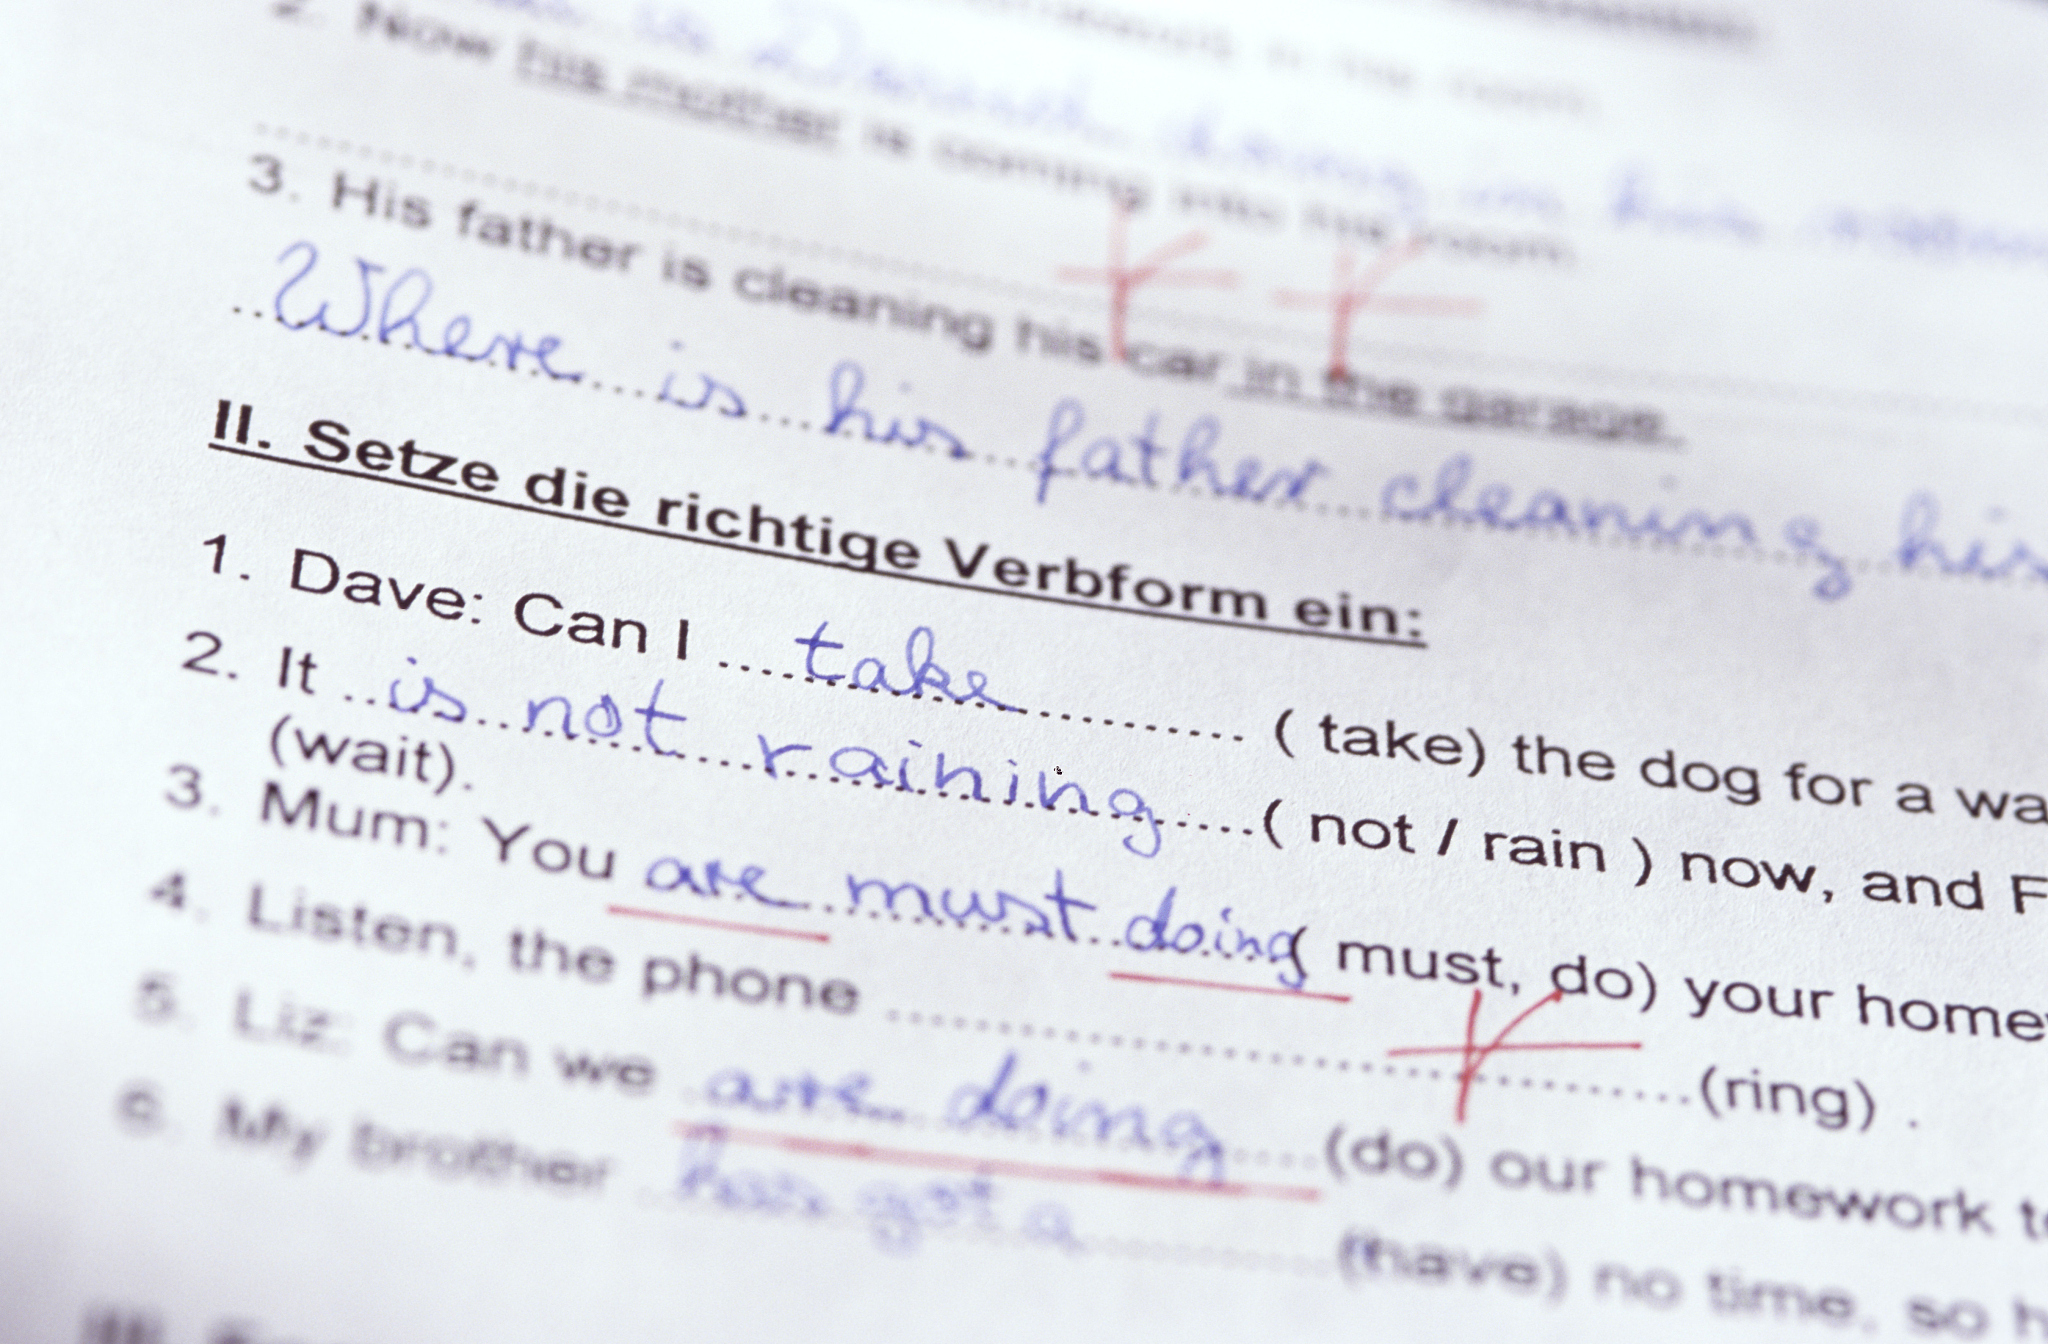 2. Now his mother is coming into his room.
3. His father is cleaning his car in the garage.
Where is his father cleaning his
II. Setze die richtige Verbform ein:
1. Dave: Can I take ( take) the dog for a wa
2. It is not raining ( not / rain ) now, and F
(wait).
3. Mum: You are must doing ( must, do) your home
4. Listen, the phone (ring) .
5. Liz: Can we are doing (do) our homework to
6. My brother has got a (have) no time, so h